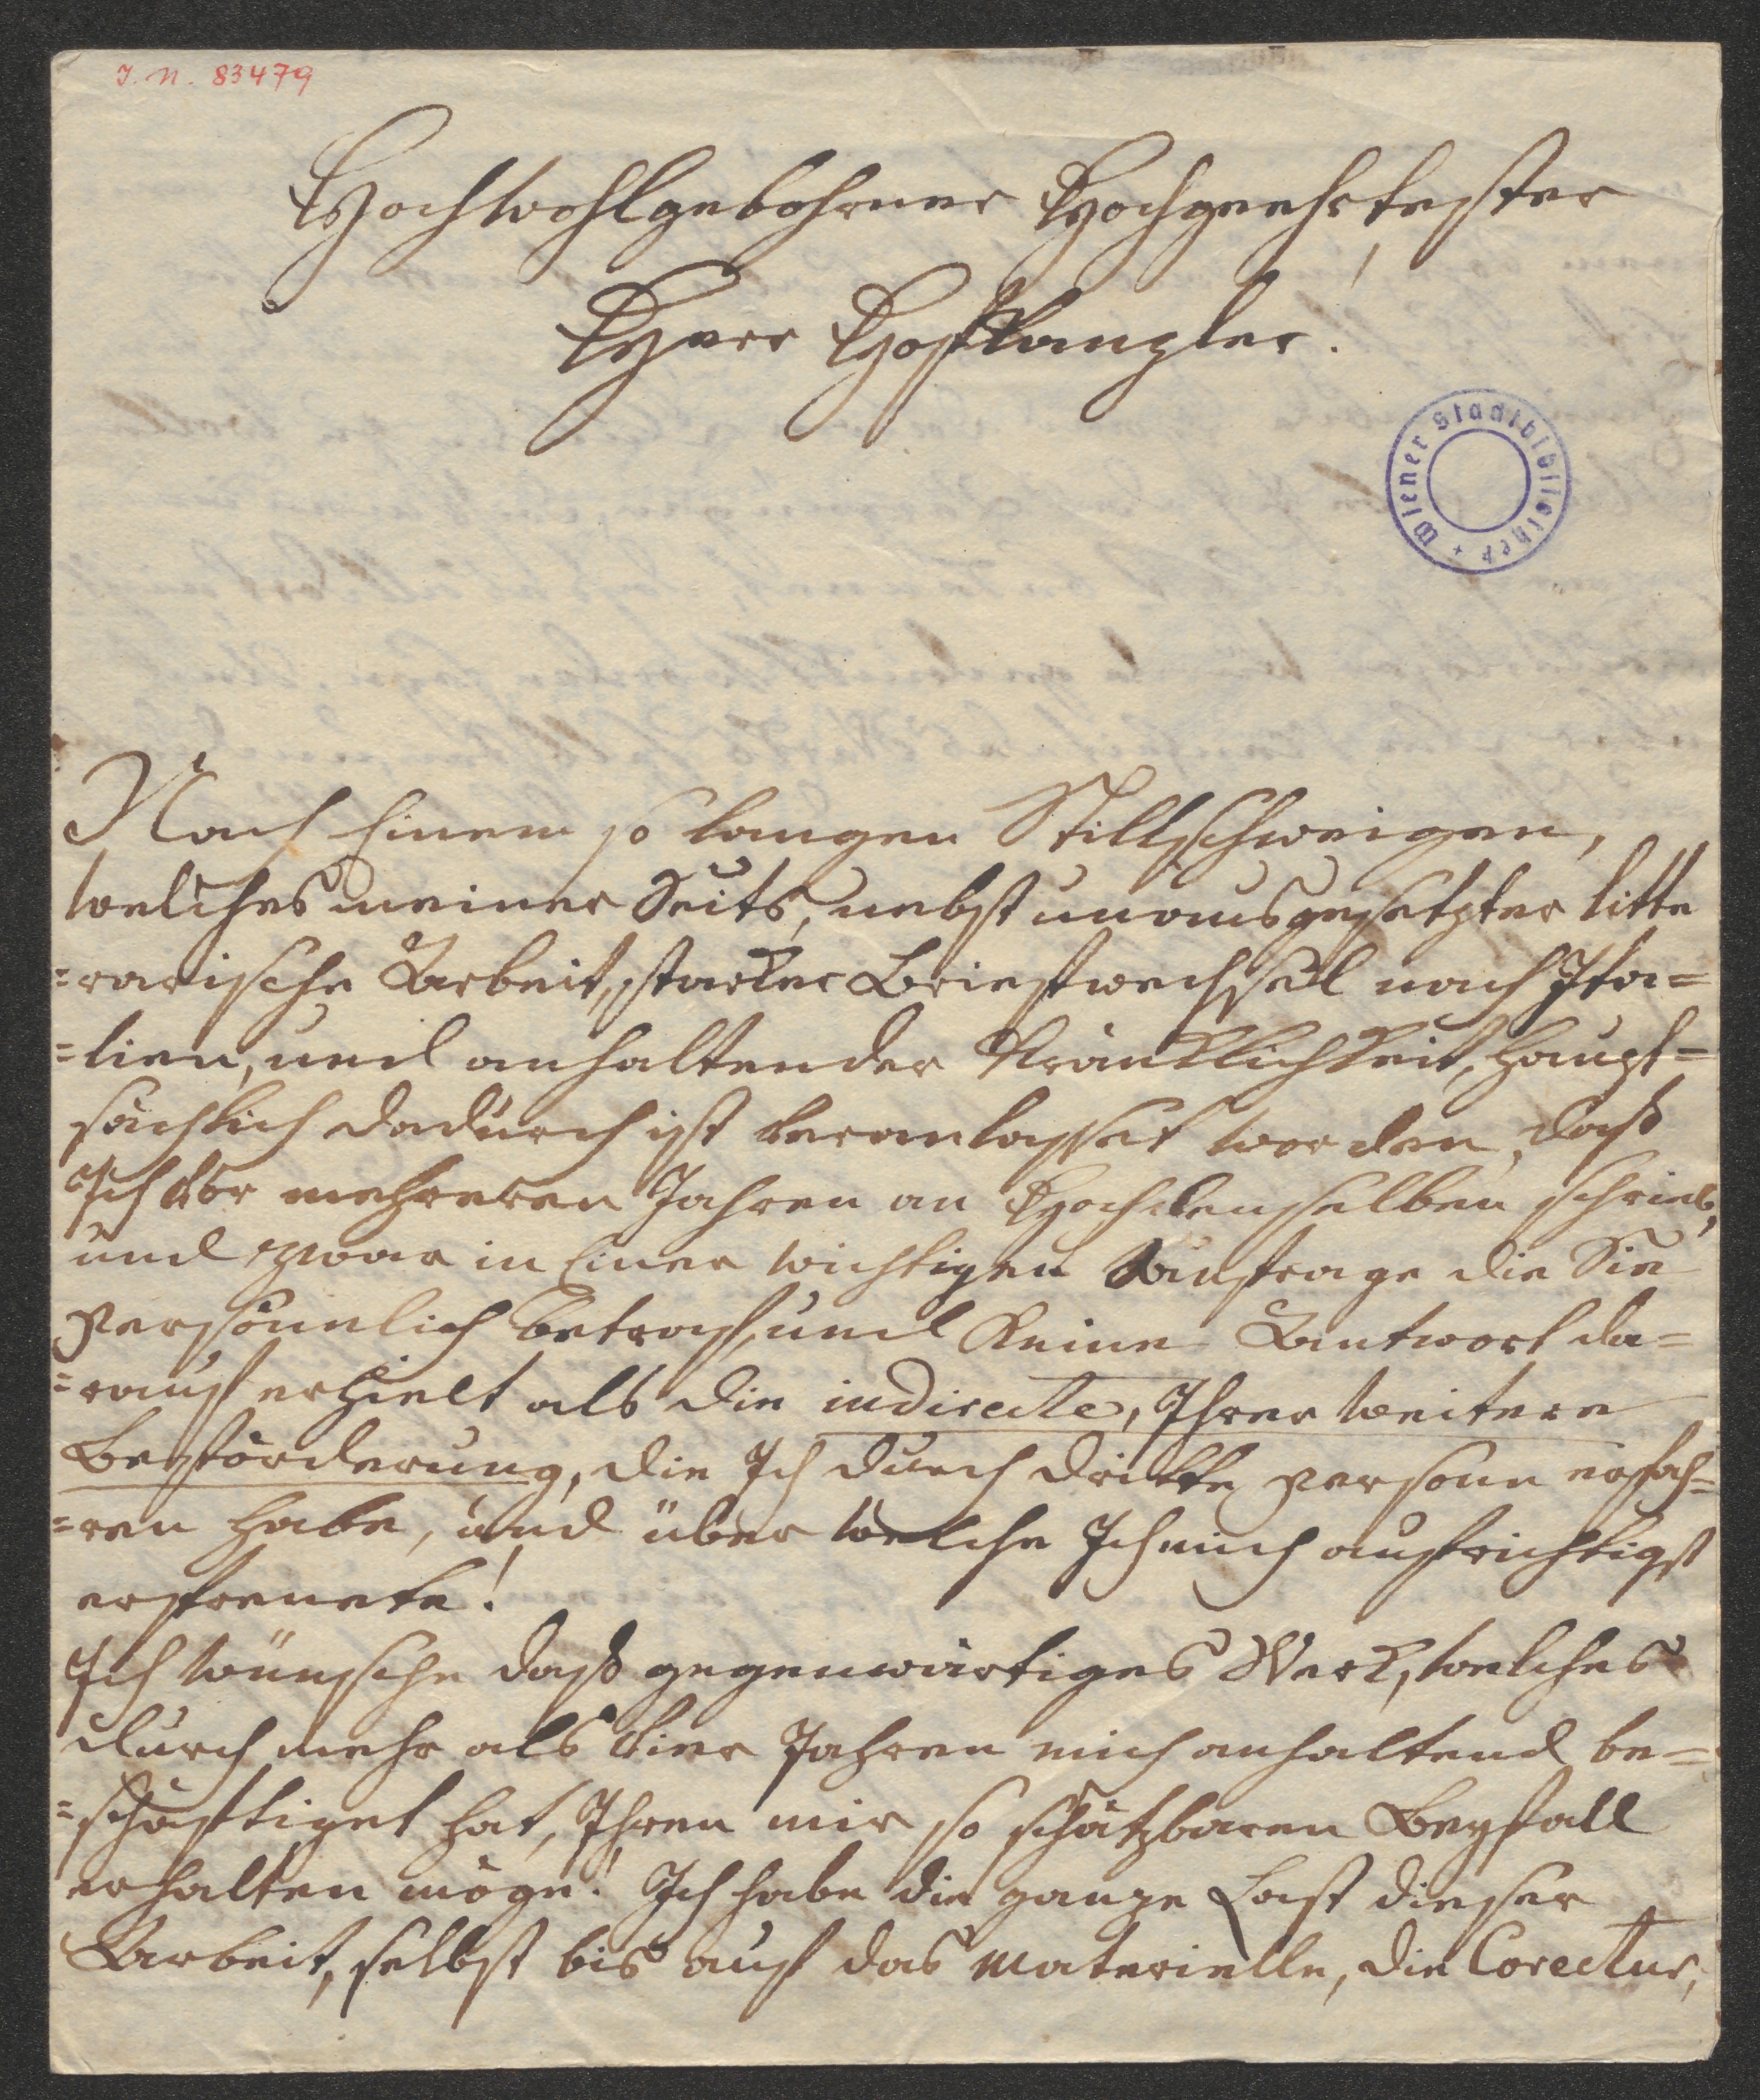 I. N. 83479
Hochwohlgebohrner Hochgeehrtester
Herr Hofkanzler!
Wiener Stadtbibliothek
Nach Einem so langen Stillschweigen,
welches meiner Seits, nebst unausgesetzter litte
=rarische Arbeit, starker Briefwechsel nach Ita=
=lien, und anhaltender Kränklichkeit, haupt=
sächlich dadurch ist veranlasset worden, daß
Ich vor mehreren Jahren an Hochdenselben schrieb,
und zwar in Einer wichtigen Anfrage die Sie
persönnlich betraf, und Keine Antwort da=
=rauf erhielt als die indirecte, Ihrer weitere
Beförderung, die Ich durch dritte person erfah=
=ren habe, und über welche Ich mich aufrichtigst
erfreuete!
Ich wünsche daß gegenwärtiges Werk, welches
durch mehr als vier Jahren mich anhaltend be=
=schäftiget hat, Ihren mir so schätzbaren Beyfall
erhalten möge! Ich habe die ganze Last dieser
Arbeit, selbst bis auf das materielle, die Corectur,